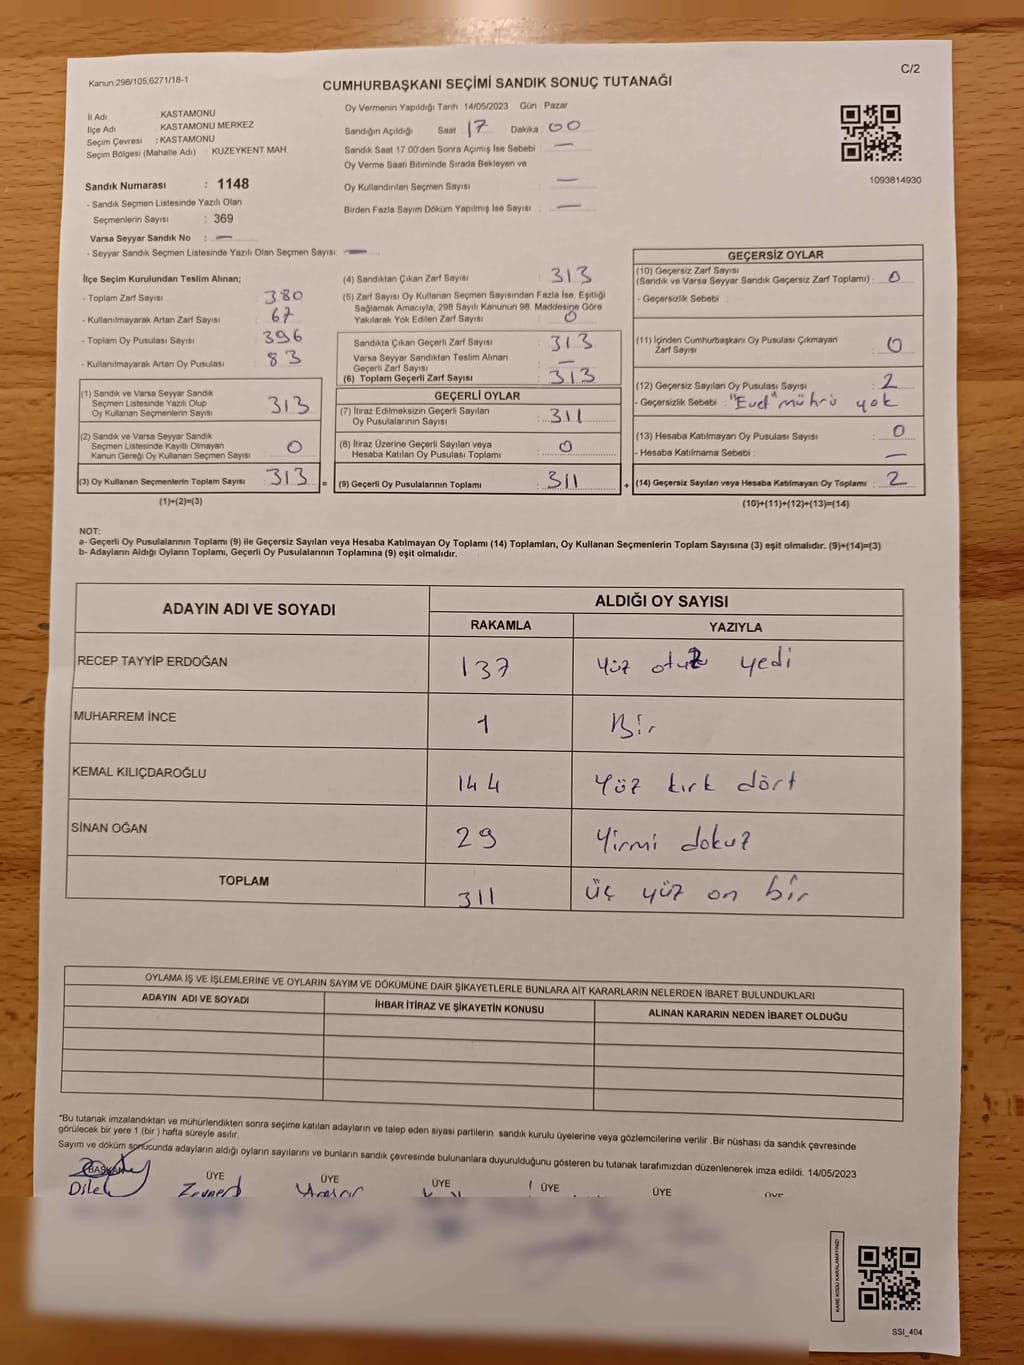 Kanun:298/105,6271/18-1
C/2
CUMHURBAŞKANI SEÇİMİ SANDIK SONUÇ TUTANAĞI
İl Adı : KASTAMONU
İlçe Adı KASTAMONU MERKEZ
Seçim Çevresi : KASTAMONU
Seçim Bölgesi (Mahalle Adı) KUZEYKENT MAH.
Sandık Numarası : 1148
- Sandık Seçmen Listesinde Yazılı Olan
Seçmenlerin Sayısı : 369
Varsa Seyyar Sandık No : —
- Seyyar Sandık Seçmen Listesinde Yazılı Olan Seçmen Sayısı: —
Oy Vermenin Yapıldığı Tarih : 14/05/2023 Gün : Pazar
Sandığın Açıldığı Saat 17 Dakika : 00
Sandık Saat 17.00'den Sonra Açımış İse Sebebi : —
Oy Verme Saati Bitiminde Sırada Bekleyen ve
Oy Kullandırılan Seçmen Sayısı : —
Birden Fazla Sayım Döküm Yapılmış İse Sayısı : —
1093814930
İlçe Seçim Kurulundan Teslim Alınan;
- Toplam Zarf Sayısı : 380
- Kullanılmayarak Artan Zarf Sayısı : 67
- Toplam Oy Pusulası Sayısı : 396
- Kullanılmayarak Artan Oy Pusulası : 83
(1) Sandık ve Varsa Seyyar Sandık
Seçmen Listesinde Yazılı Olup
Oy Kullanan Seçmenlerin Sayısı : 313
(2) Sandık ve Varsa Seyyar Sandık
Seçmen Listesinde Kayıtlı Olmayan
Kanun Gereği Oy Kullanan Seçmen Sayısı : 0
(3) Oy Kullanan Seçmenlerin Toplam Sayısı : 313 =
(1)+(2)=(3)
(4) Sandıktan Çıkan Zarf Sayısı : 313
(5) Zarf Sayısı Oy Kullanan Seçmen Sayısından Fazla İse, Eşitliği
Sağlamak Amacıyla, 298 Sayılı Kanunun 98. Maddesine Göre
Yakılarak Yok Edilen Zarf Sayısı : 0
Sandıkta Çıkan Geçerli Zarf Sayısı : 313
Varsa Seyyar Sandıktan Teslim Alınan
Geçerli Zarf Sayısı : —
(6) Toplam Geçerli Zarf Sayısı : 313
GEÇERLİ OYLAR
(7) İtiraz Edilmeksizin Geçerli Sayılan
Oy Pusulalarının Sayısı : 311
(8) İtiraz Üzerine Geçerli Sayılan veya
Hesaba Katılan Oy Pusulası Toplamı : 0
(9) Geçerli Oy Pusulalarının Toplamı : 311 +
GEÇERSİZ OYLAR
(10) Geçersiz Zarf Sayısı
(Sandık ve Varsa Seyyar Sandık Geçersiz Zarf Toplamı) : 0
- Geçersizlik Sebebi :
(11) İçinden Cumhurbaşkanı Oy Pusulası Çıkmayan
Zarf Sayısı : 0
(12) Geçersiz Sayılan Oy Pusulası Sayısı : 2
- Geçersizlik Sebebi : "Evet" mührü yok
(13) Hesaba Katılmayan Oy Pusulası Sayısı : 0
- Hesaba Katılmama Sebebi : —
(14) Geçersiz Sayılan veya Hesaba Katılmayan Oy Toplamı : 2
(10)+(11)+(12)+(13)=(14)
NOT:
a- Geçerli Oy Pusulalarının Toplamı (9) ile Geçersiz Sayılan veya Hesaba Katılmayan Oy Toplamı (14) Toplamları, Oy Kullanan Seçmenlerin Toplam Sayısına (3) eşit olmalıdır. (9)+(14)=(3)
b- Adayların Aldığı Oyların Toplamı, Geçerli Oy Pusulalarının Toplamına (9) eşit olmalıdır.
ADAYIN ADI VE SOYADI ALDIĞI OY SAYISI
RAKAMLA YAZIYLA
RECEP TAYYİP ERDOĞAN 137 Yüz otuz yedi
MUHARREM İNCE 1 Bir
KEMAL KILIÇDAROĞLU 144 Yüz kırk dört
SİNAN OĞAN 29 Yirmi dokuz
TOPLAM 311 üç yüz on bir
OYLAMA İŞ VE İŞLEMLERİNE VE OYLARIN SAYIM VE DÖKÜMÜNE DAİR ŞİKAYETLERLE BUNLARA AİT KARARLARIN NELERDEN İBARET BULUNDUKLARI
ADAYIN ADI VE SOYADI İHBAR İTİRAZ VE ŞİKAYETİN KONUSU ALINAN KARARIN NEDEN İBARET OLDUĞU
"Bu tutanak imzalandıktan ve mühürlendikten sonra seçime katılan adayların ve talep eden siyasi partilerin sandık kurulu üyelerine veya gözlemcilerine verilir .Bir nüshası da sandık çevresinde
görülecek bir yere 1 (bir ) hafta süreyle asılır.
Sayım ve döküm sonucunda adayların aldığı oyların sayılarını ve bunların sandık çevresinde bulunanlara duyurulduğunu gösteren bu tutanak tarafımızdan düzenlenerek imza edildi. 14/05/2023
BAŞKAN ÜYE ÜYE ÜYE ÜYE ÜYE ÜYE
Dilek
KARE KODU KARALAMAYINIZ!
SSI_404